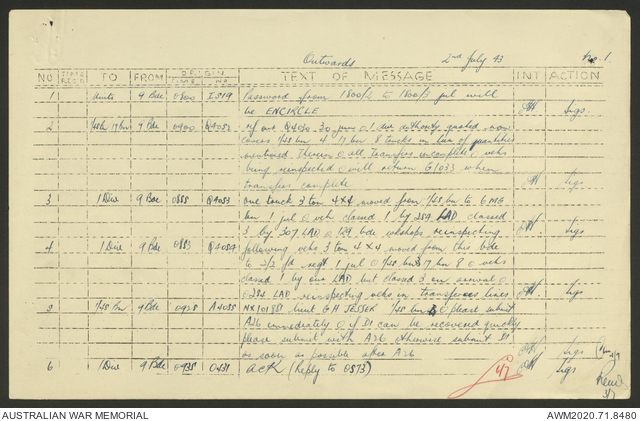 Outwards 2nd July 43 No. 1.
NO TIME REC'D TO FROM ORIGIN TIME NR. TEXT OF MESSAGE INT ACTION
1 units 9 Bde 0800 I519 Password from 1800/2 to 1800/3 jul will Sigs
be ENCIRCLE
2 17 bn 9 Bde 0900 Q4052 my Q4030 30 jun 0 1 div authority quoted now
covers 1/48 bn 4 17 bn 8 trucks in lieu of quantities
mentioned Therein 0 all transfers incomplete, vehs
being reinspected 0 will action G1033 when
transfers complete Sigs
3 1 Div 9 Bde 0855 Q4053 one truck 3 ton 4x4 moved from 1/48 bn to 6 MG
bn 1 jul 0 veh classed 1 by 284 LAD classed
3 by 307 LAD 0 bde wkshops reinspecting Sigs
4 1 Div 9 Bde Q4054 following vehs 3 ton 4x4 moved from this bde
to 2/2 fd regt 1 jul 0 1/48 bn 17 bn 8 0 vehs
classed 1 by our LAD but classed 3 on arrival 0
284 LAD reinspecting vehs in transferees lines Sigs
1/48 Bn 9 Bde 0928 A4055 lieut GH JESSER 1/48 bn 0 please submit
A26 immediately 0 if D1 can be recovered quickly
please submit with A26 otherwise submit D1
as soon as possible after A26 Sigs
6 1 Div 9 Bde 0935 0431 ACK (Reply to 0573) Sigs
4/7
3/7
AUSTRALIAN WAR MEMORIAL AWM2020.71.8480